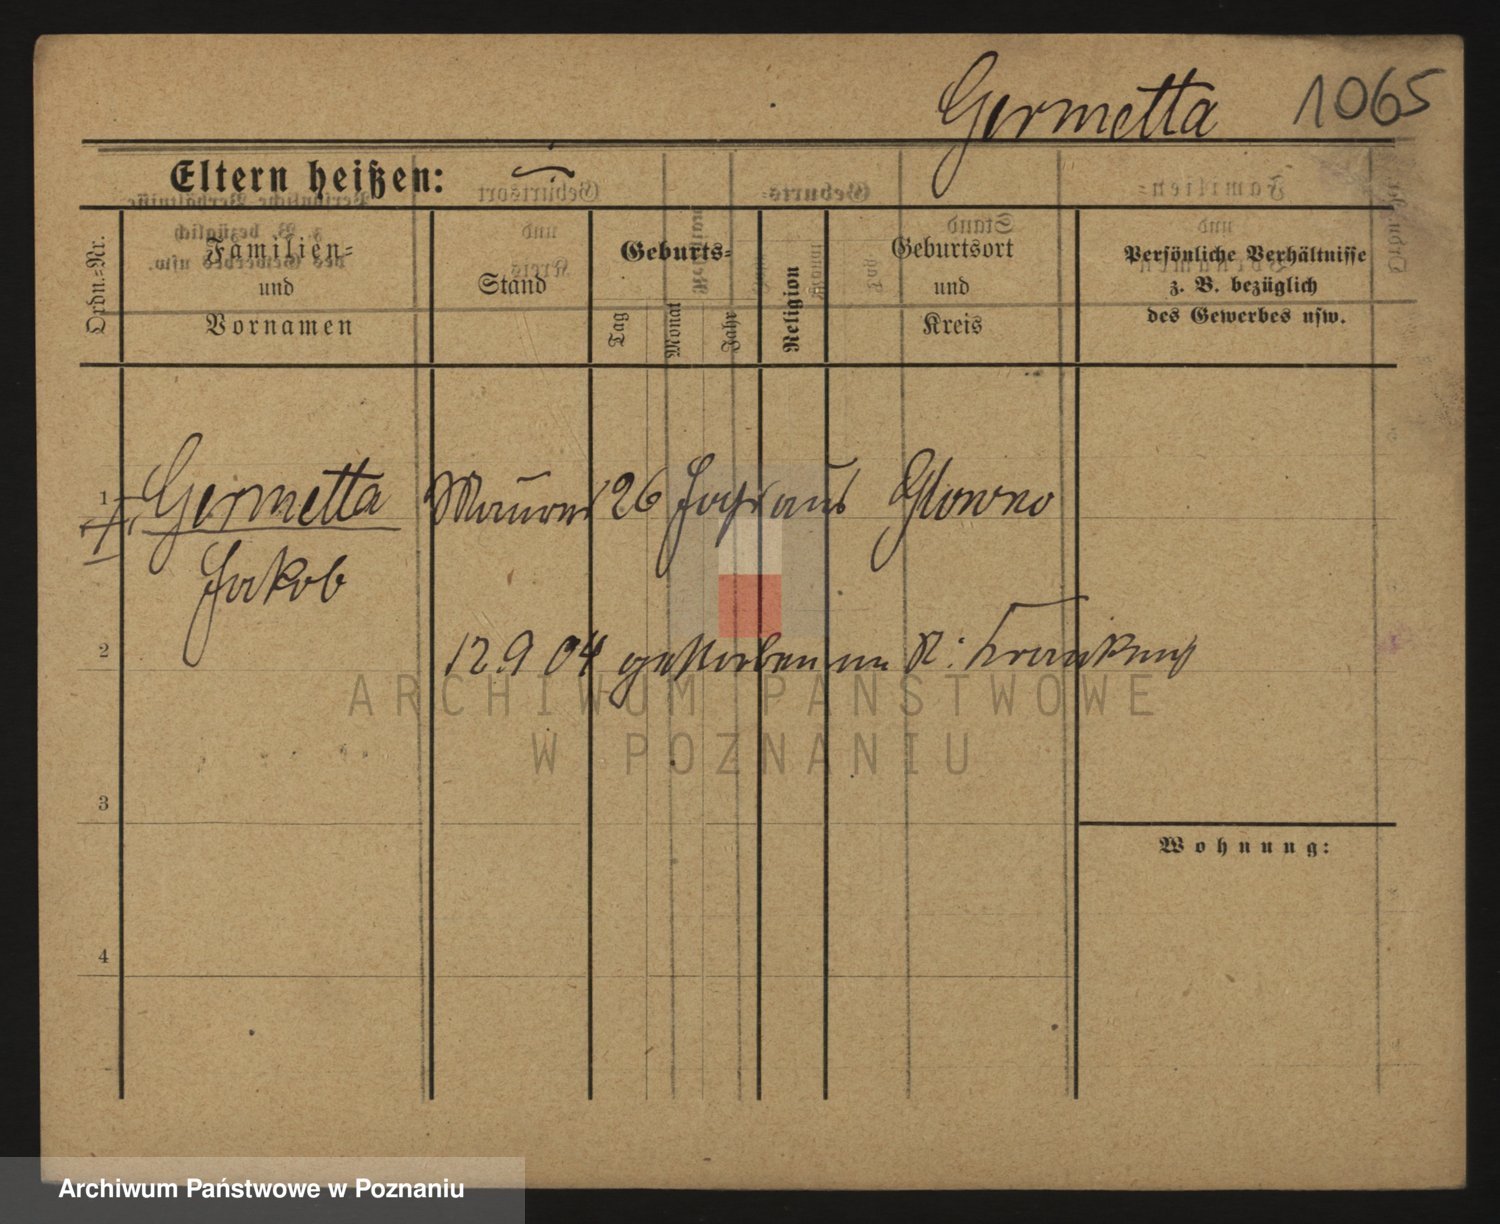 Germetta 1065
Eltern heißen:
Ordn.=Nr.
Familien=
und
Vornamen
Stand
Geburts=
Tag
Monat
Jahr
Religion
Geburtsort
und
Kreis
Persönliche Verhältnisse
z. B. bezüglich
des Gewerbes usw.
1 Germetta Maurer 26 Jahr aus Glowno
Jakob
2 12 9 04 gestorben im St:
3
Wohnung:
4
ARCHIWUM PAŃSTWOWE
W POZNANIU
Archiwum Państwowe w Poznaniu